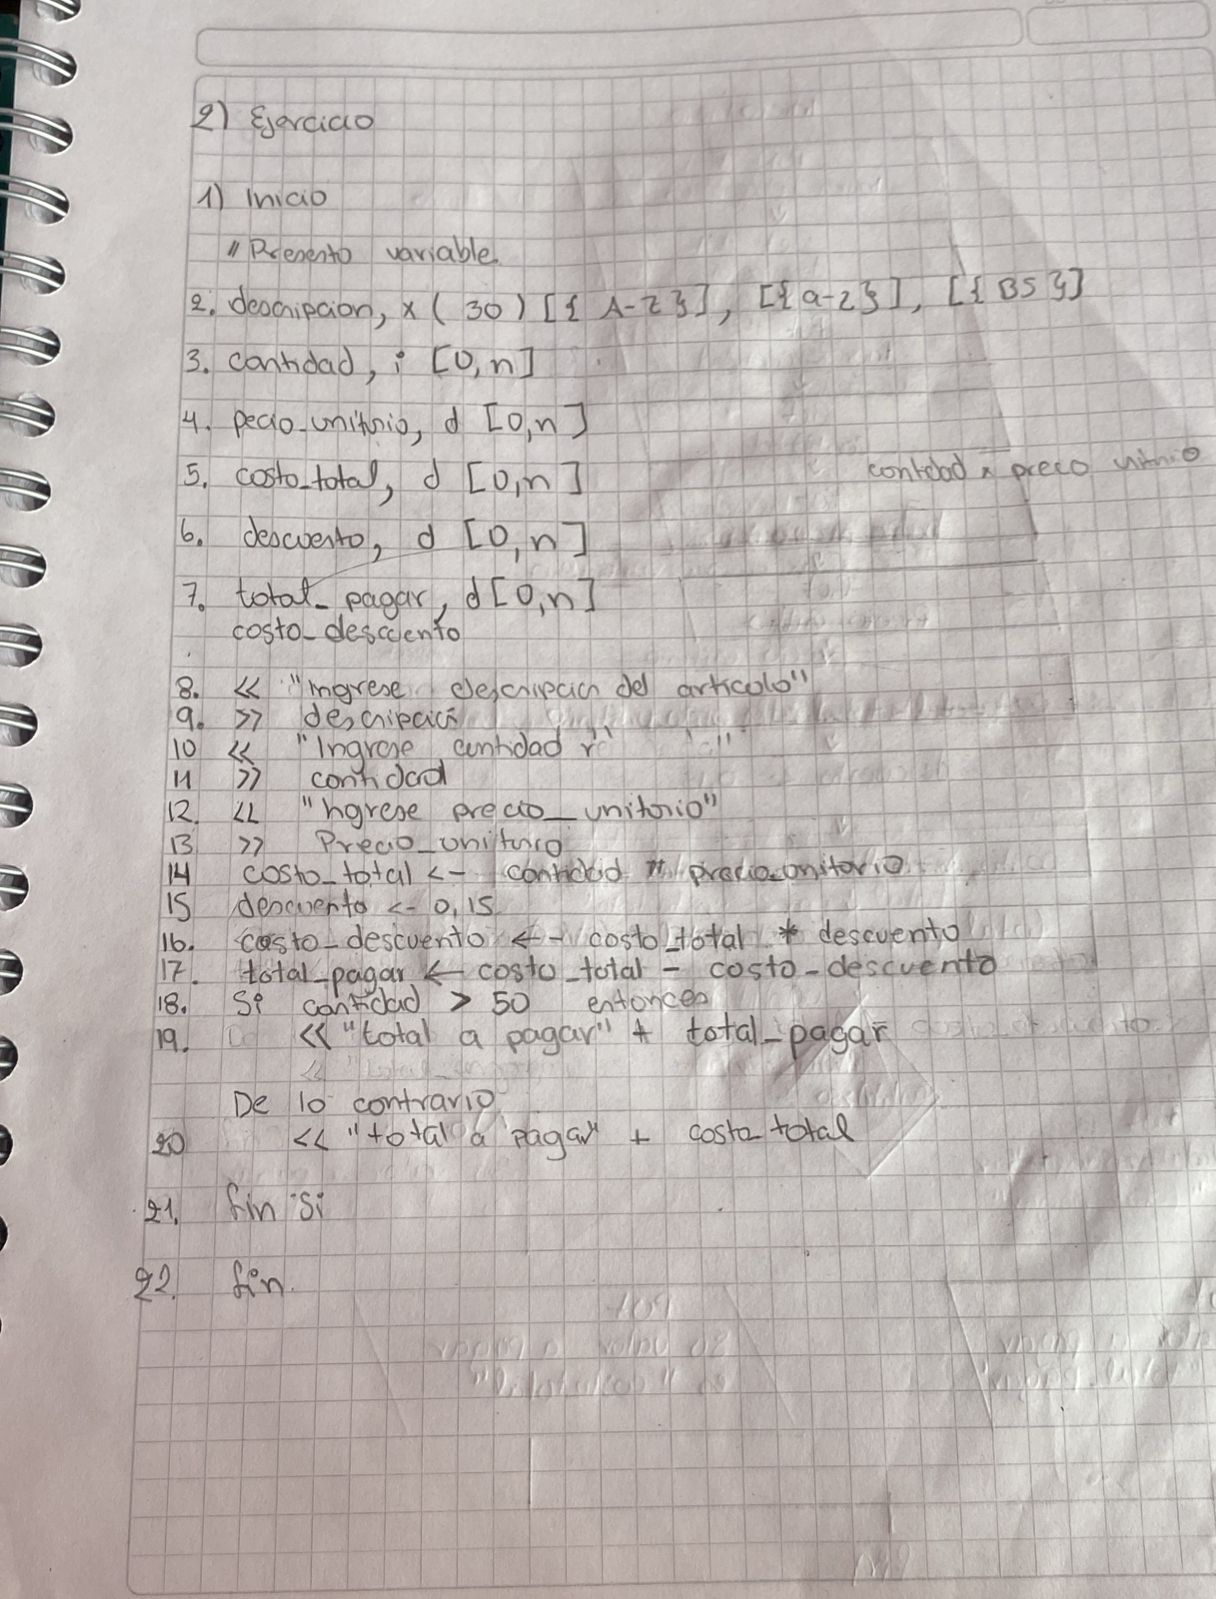 2) Ejercicio
1) Inicio
// Presento variable
2. descripcion, x (30) [{ A-Z }], [{a-z}], [{ BS }]
3. cantidad, i [0,n]
4. pecio_unitrio, d [0,n]
5. costo_total, d [0,n]
cantidad x preco unitrio
6. descuento, d [0,n]
7. total_pagar, d [0,n]
costo_descuento
8. << "Ingrese descripcion del articulo"
9. >> descripcion
10 << "Ingrese cantidad "
11 >> cantidad
12. << "Ingrese precio_unitario"
13 >> Precio_unitario
14 costo_total <- cantidad * precio_unitario
15 descuento <- 0,15
16. costo_descuento <- costo_total * descuento
17. total_pagar <- costo_total - costo_descuento
18. Si cantidad > 50 entonces
19. << "total a pagar" + total_pagar
De lo contrario
20 << "total a pagar" + costo_total
21. fin si
22. fin.